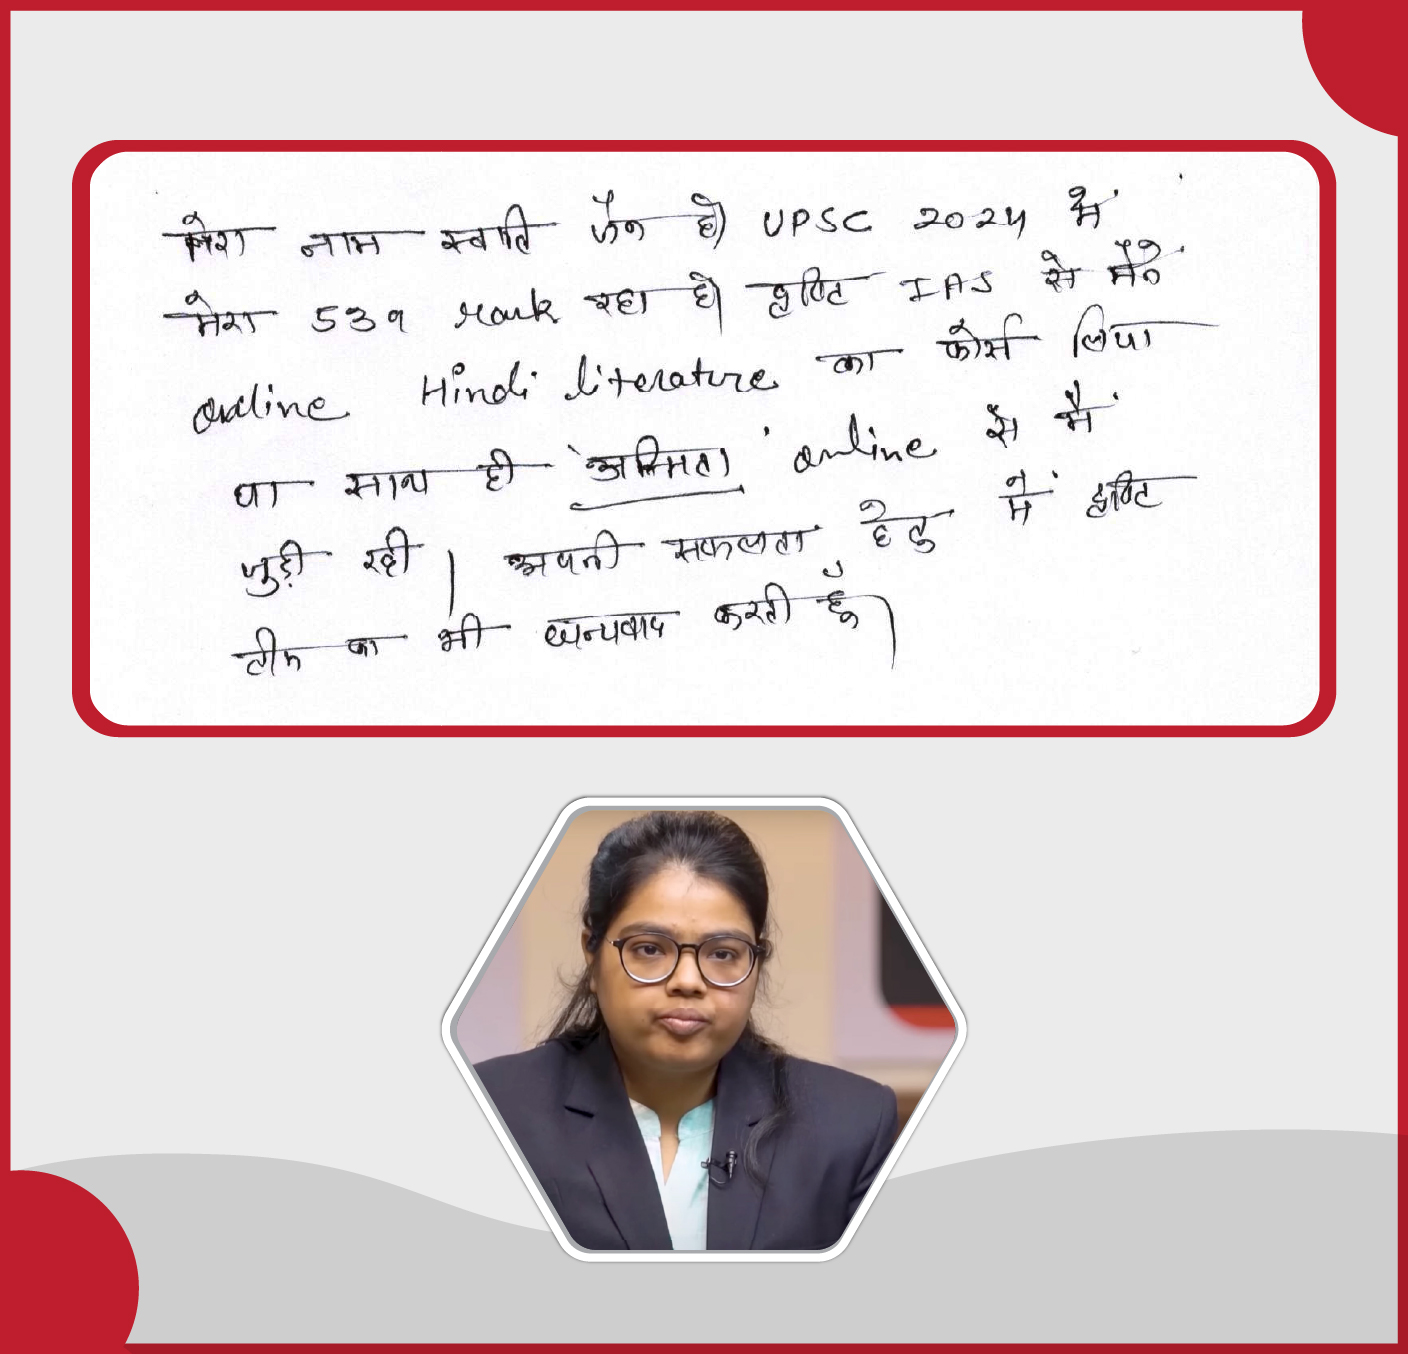 मेरा नाम स्वाति जैन है। UPSC 2024 में
मेरा 539 rank रहा है। दृष्टि IAS से मैंने
online Hindi literature का कोर्स लिया
था साथ ही 'अस्मिता' online से मैं
जुड़ी रही। अपनी सफलता हेतु में दृष्टि
टीम का भी धन्यवाद करती हूँ।